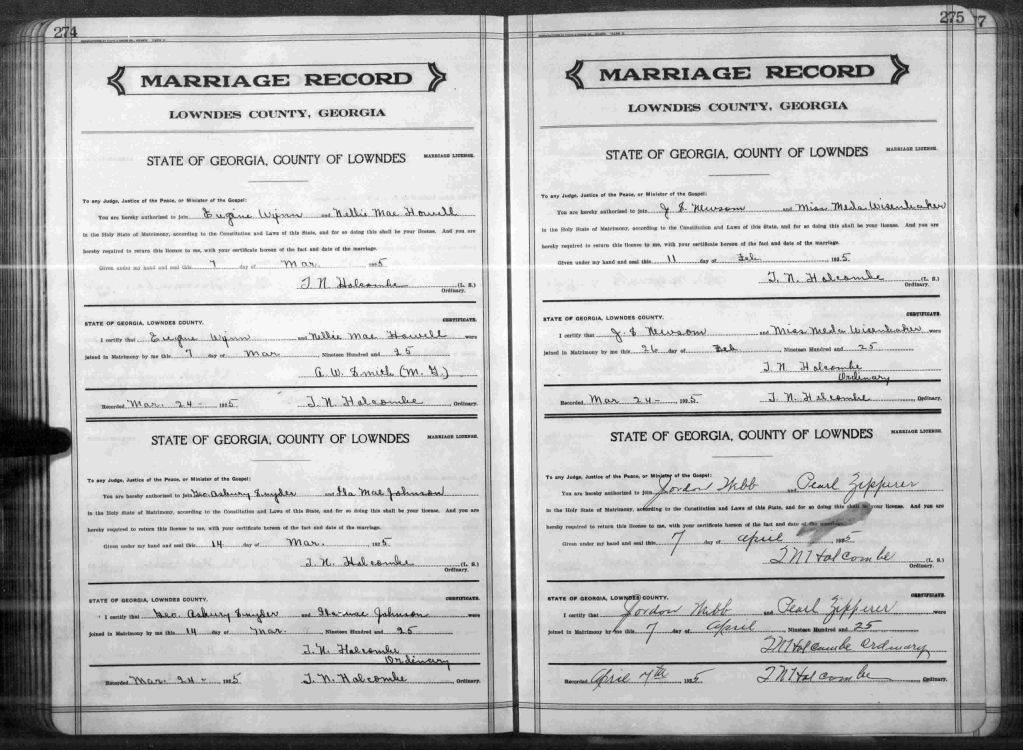 274
MARRIAGE RECORD
LOWNDES COUNTY, GEORGIA
STATE OF GEORGIA, COUNTY OF LOWNDES MARRIAGE LICENSE.
To any Judge, Justice of the Peace, or Minister of the Gospel:
You are hereby authorized to join Eugene Wynn and Nellie Mae Howell
in the Holy State of Matrimony, according to the Constitution and Laws of this State, and for so doing this shall be your license. And you are
hereby required to return this license to me, with your certificate hereon of the fact and date of the marriage.
Given under my hand and seal this 7 day of Mar. 1925
T. N. Holcombe (L. S.)
Ordinary.
STATE OF GEORGIA, LOWNDES COUNTY. CERTIFICATE.
I certify that Eugene Wynn and Nellie Mae Howell were
joined in Matrimony by me this 7 day of Mar Nineteen Hundred and 25
A. W. Smith (M. G.)
Recorded Mar. 24 - 1925 T. N. Holcombe Ordinary.
STATE OF GEORGIA, COUNTY OF LOWNDES MARRIAGE LICENSE.
To any Judge, Justice of the Peace, or Minister of the Gospel:
You are hereby authorized to join Geo. Asbury Snyder and Ila Mae Johnson
in the Holy State of Matrimony, according to the Constitution and Laws of this State, and for so doing this shall be your license. And you are
hereby required to return this license to me, with your certificate hereon of the fact and date of the marriage.
Given under my hand and seal this 14 day of Mar. 1925
T. N. Holcombe (L. S.)
Ordinary.
STATE OF GEORGIA, LOWNDES COUNTY. CERTIFICATE.
I certify that Geo. Asbury Snyder and Ila-mae Johnson were
joined in Matrimony by me this 14 day of Mar. Nineteen Hundred and 25
T. N. Holcombe
Ordinary
Recorded Mar. 24 - 1925 T. N. Holcombe Ordinary.
275
7
MARRIAGE RECORD
LOWNDES COUNTY, GEORGIA
STATE OF GEORGIA, COUNTY OF LOWNDES MARRIAGE LICENSE.
To any Judge, Justice of the Peace, or Minister of the Gospel:
You are hereby authorized to join J. S. Newsom and Miss Meda Wisenbaker
in the Holy State of Matrimony, according to the Constitution and Laws of this State, and for so doing this shall be your license. And you are
hereby required to return this license to me, with your certificate hereon of the fact and date of the marriage.
Given under my hand and seal this 11 day of Feb 1925
T. N. Holcombe (L. S.)
Ordinary.
STATE OF GEORGIA, LOWNDES COUNTY. CERTIFICATE.
I certify that J. S. Newsom and Miss Meda Wisenbaker were
joined in Matrimony by me this 26 day of Feb Nineteen Hundred and 25
T. N. Holcombe
Ordinary
Recorded Mar 24 - 1925 T. N. Holcombe Ordinary.
STATE OF GEORGIA, COUNTY OF LOWNDES MARRIAGE LICENSE.
To any Judge, Justice of the Peace, or Minister of the Gospel:
You are hereby authorized to join Jordon Webb and Pearl Zipperer
in the Holy State of Matrimony, according to the Constitution and Laws of this State, and for so doing this shall be your license. And you are
hereby required to return this license to me, with your certificate hereon of the fact and date of the marriage.
Given under my hand and seal this 7 day of April 1925
T N Holcombe (L. S.)
Ordinary.
STATE OF GEORGIA, LOWNDES COUNTY. CERTIFICATE.
I certify that Jordon Webb and Pearl Zipperer were
joined in Matrimony by me this 7 day of April Nineteen Hundred and 25
T N Holcombe Ordinary
Recorded April 7th 1925 T N Holcombe Ordinary.